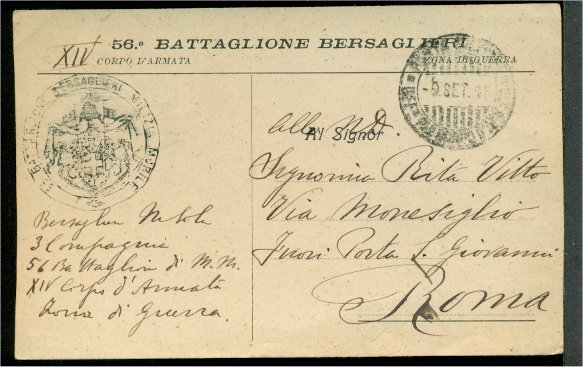 56.º BATTAGLIONE BERSAGLIERI
XIV CORPO D'ARMATA
ZONA DI GUERRA
BERSAGLIERI MILIZIA MOBILE
SET. 15
Alla N.D.
Al Signor
Signorina Rita Vitto
Via Monesiglio
Fuori Porta S. Giovanni
Roma
Bersagliere
3 Compagnia
56 Battaglione di M. M.
XIV Corpo d'Armata
Zona di Guerra.